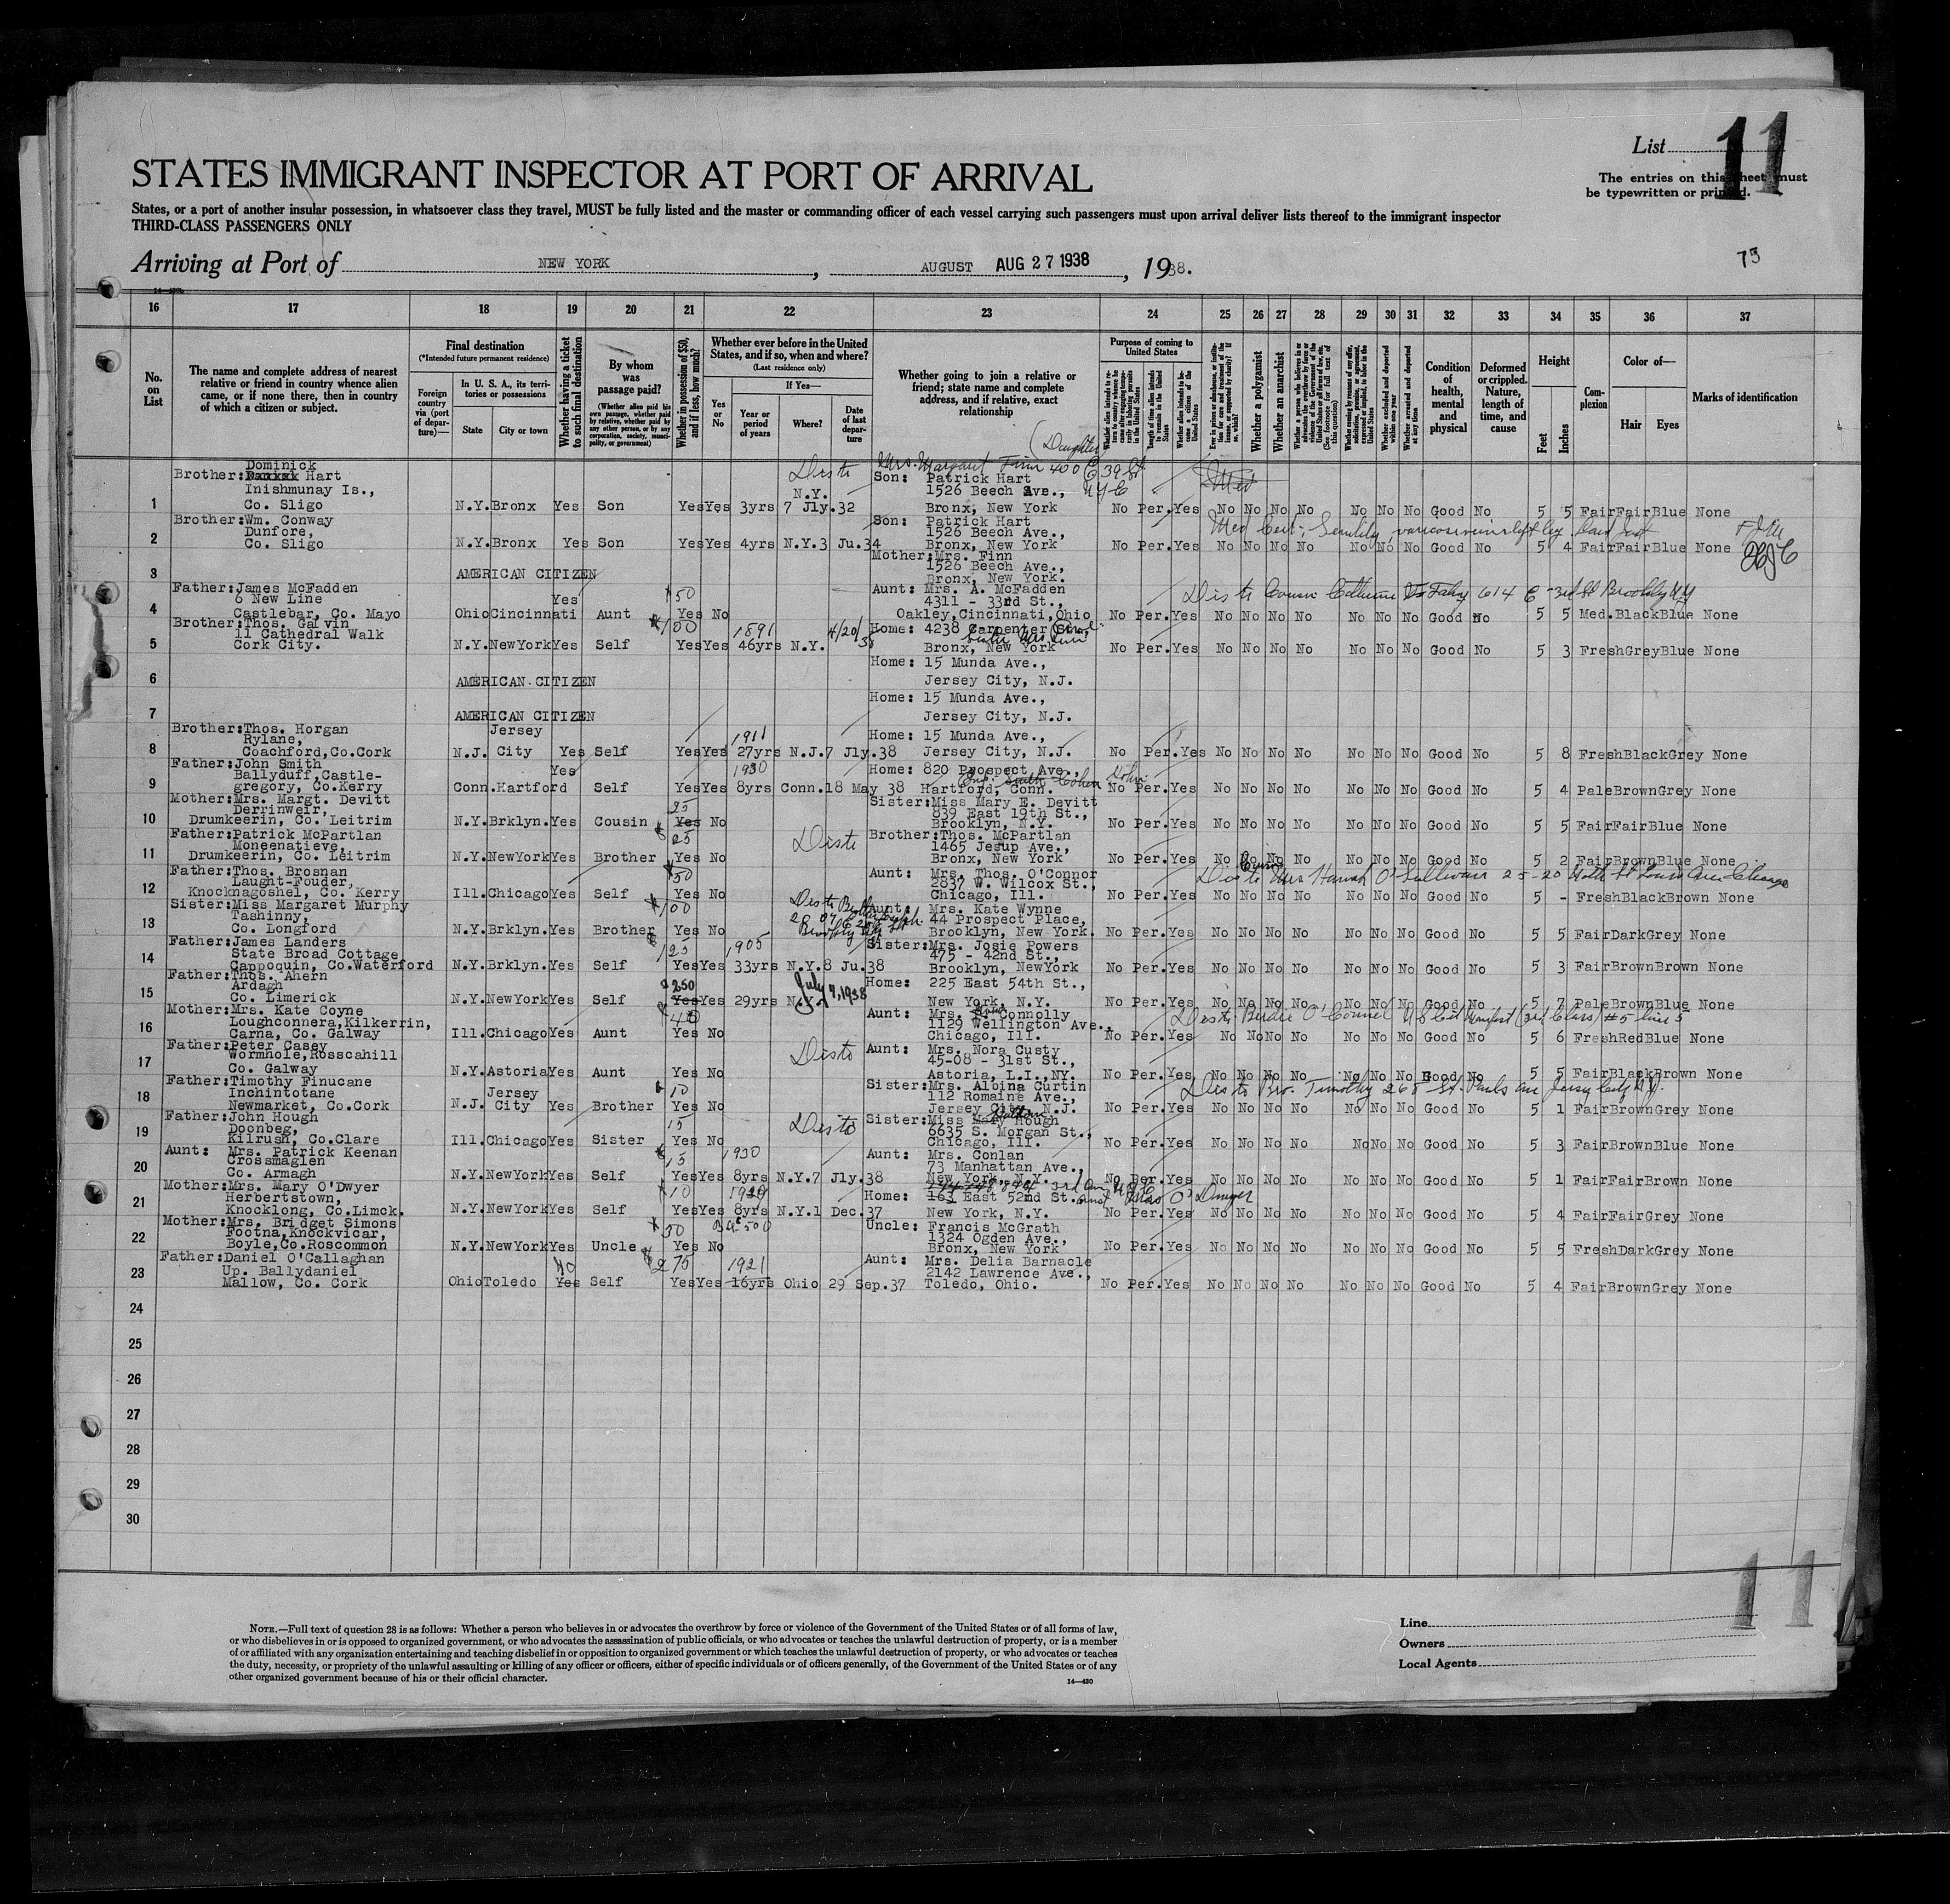 List 11
The entries on this sheet must
be typewritten or printed.
STATES IMMIGRANT INSPECTOR AT PORT OF ARRIVAL
States, or a port of another insular possession, in whatsoever class they travel, MUST be fully listed and the master or commanding officer of each vessel carrying such passengers must upon arrival deliver lists thereof to the immigrant inspector
THIRD-CLASS PASSENGERS ONLY
Arriving at Port of NEW YORK, AUGUST AUG 27 1938, 1938.
75
16 17 18 19 20 21 22 23 24 25 26 27 28 29 30 31 32 33 34 35 36 37
No. on List
The name and complete address of nearest relative or friend in country whence alien came, or if none there, then in country of which a citizen or subject.
Final destination
(*Intended future permanent residence)
Foreign country via (port of departure)—
In U. S. A., its territories or possessions
State City or town
Whether having a ticket to such final destination
By whom was passage paid?
(Whether alien paid his own passage, whether paid by relative, whether paid by any other person, or by any corporation, society, municipality, or government)
Whether in possession of $50, and if less, how much?
Whether ever before in the United States, and if so, when and where?
(Last residence only)
Yes or No
If Yes—
Year or period of years
Where?
Date of last departure
Whether going to join a relative or friend; state name and complete address, and if relative, exact relationship
Purpose of coming to United States
Whether a polygamist
Whether an anarchist
Condition of health, mental and physical
Deformed or crippled. Nature, length of time, and cause
Height
Feet Inches
Complexion
Color of—
Hair Eyes
Marks of identification
(Daughter
Disto Mrs. Margaret Finn 400 E 39 St NYC
Brother: Dominick Hart
Inishmunay Is.,
Son: Patrick Hart
1526 Beech Ave.,
1 Co. Sligo N.Y. Bronx Yes Son Yes Yes 3yrs N.Y. 7 Jly.32 Bronx, New York No Per. Yes No No No No No No No Good No 5 5 Fair Fair Blue None
Brother: Wm. Conway
Dunfore,
Son: Patrick Hart
1526 Beech Ave.,
Med Cert; Senility, varicose veins left leg
2 Co. Sligo N.Y. Bronx Yes Son Yes Yes 4yrs N.Y. 3 Ju.34 Bronx, New York No Per. Yes No No No No No No No Good No 5 4 Fair Fair Blue None
Mother: Mrs. Finn
1526 Beech Ave.,
3 AMERICAN CITIZEN Bronx, New York.
Father: James McFadden
6 New Line
Aunt: Mrs. A. McFadden
4311 - 33rd St.,
Disto Cousin Catherine Fahy 614 E -3rd St Brooklyn NY
$50
4 Castlebar, Co. Mayo Ohio Cincinnati Yes Aunt Yes No Oakley, Cincinnati, Ohio No Per. Yes No No No No No No No Good No 5 5 Med. Black Blue None
Brother: Thos. Galvin
11 Cathedral Walk
$100 1891 4/20/38
Home: 4238 Carpenter
5 Cork City. N.Y. NewYork Yes Self Yes Yes 46yrs N.Y. Bronx, New York No Per. Yes No No No No No No No Good No 5 3 Fresh Grey Blue None
Home: 15 Munda Ave.,
6 AMERICAN CITIZEN Jersey City, N.J.
Home: 15 Munda Ave.,
7 AMERICAN CITIZEN Jersey City, N.J.
Brother: Thos. Horgan
Rylane,
1911
Home: 15 Munda Ave.,
8 Coachford, Co.Cork N.J. Jersey City Yes Self Yes Yes 27yrs N.J. 7 Jly.38 Jersey City, N.J. No Per. Yes No No No No No No No Good No 5 8 Fresh Black Grey None
Father: John Smith
Ballyduff, Castle-
1930
Home: 820 Prospect Ave.,
9 gregory, Co.Kerry Conn. Hartford Yes Self Yes Yes 8yrs Conn. 18 May 38 Hartford, Conn. No Per. Yes No No No No No No No Good No 5 4 Pale Brown Grey None
Mother: Mrs. Margt. Devitt
Derrinweir,
25
Sister: Miss Mary E. Devitt
839 East 19th St.,
10 Drumkeerin, Co. Leitrim N.Y. Brklyn. Yes Cousin Yes No Brooklyn, N.Y. No Per. Yes No No No No No No No Good No 5 5 Fair Fair Blue None
Father: Patrick McPartlan
Moneenatieve,
$25 Disto
Brother: Thos. McPartlan
1465 Jesup Ave.,
11 Drumkeerin, Co. Leitrim N.Y. NewYork Yes Brother Yes No Bronx, New York No Per. Yes No No No No No No No Good No 5 2 Fair Brown Blue None
Father: Thos. Brosnan
Laught-Fouder,
$50
Aunt: Mrs. Thos. O'Connor
2837 W. Wilcox St.,
Disto Cousin Mrs Hannah O'Sullivan 25-20 North St Louis Ave Chicago
12 Knocknagoshel, Co. Kerry Ill. Chicago Yes Self Yes No Chicago, Ill. No Per. Yes No No No No No No No Good No 5 - Fresh Black Brown None
Sister: Miss Margaret Murphy
Tashinny,
$100
Aunt: Mrs. Kate Wynne
44 Prospect Place,
13 Co. Longford N.Y. Brklyn. Yes Brother Yes No Brooklyn, New York. No Per. Yes No No No No No No No Good No 5 5 Fair Dark Grey None
Father: James Landers
State Broad Cottage
$125 1905
Sister: Mrs. Josie Powers
475 - 42nd St.,
14 Cappoquin, Co.Waterford N.Y. Brklyn. Yes Self Yes Yes 33yrs N.Y. 8 Ju.38 Brooklyn, NewYork No Per. Yes No No No No No No No Good No 5 3 Fair Brown Brown None
Father: Thos. Ahern
Ardagh
$250 July 7, 1938
Home: 225 East 54th St.,
15 Co. Limerick N.Y. NewYork Yes Self Yes Yes 29yrs N.Y. New York, N.Y. No Per. Yes No No No No No No No Good No 5 7 Pale Brown Blue None
Mother: Mrs. Kate Coyne
Loughconnera, Kilkerrin,
$40
Aunt: Mrs. Connolly
1129 Wellington Ave.,
Disto Birdie O'Connel US Cit Manifest (3rd Class) #5 line 5
16 Carna, Co. Galway Ill. Chicago Yes Aunt Yes No Chicago, Ill. No Per. Yes No No No No No No No Good No 5 6 Fresh Red Blue None
Father: Peter Casey
Wormhole, Rosscahill
Disto
Aunt: Mrs. Nora Custy
45-08 - 31st St.,
17 Co. Galway N.Y. Astoria Yes Aunt Yes No Astoria, L.I., NY. No Per. Yes No No No No No No No Good No 5 5 Fair Black Brown None
Father: Timothy Finucane
Inchintotane
$10
Sister: Mrs. Albina Curtin
112 Romaine Ave.,
Disto Bro. Timothy 268 St. Pauls Ave Jersey City N.J.
18 Newmarket, Co.Cork N.J. Jersey City Yes Brother Yes No Jersey City, N.J. No Per. Yes No No No No No No No Good No 5 1 Fair Brown Grey None
Father: John Hough
Doonbeg,
15 Disto
Sister: Miss Mary Hough
6635 S. Morgan St.,
19 Kilrush, Co.Clare Ill. Chicago Yes Sister Yes No Chicago, Ill. No Per. Yes No No No No No No No Good No 5 3 Fair Brown Blue None
Aunt: Mrs. Patrick Keenan
Crossmaglen
$15 1930
Aunt: Mrs. Conlan
73 Manhattan Ave.,
20 Co. Armagh N.Y. NewYork Yes Self Yes Yes 8yrs N.Y. 7 Jly.38 New York, N.Y. No Per. Yes No No No No No No No Good No 5 1 Fair Fair Brown None
Mother: Mrs. Mary O'Dwyer
Herbertstown,
$10 1929
Home: 163 East 52nd St.
21 Knocklong, Co.Limck. N.Y. NewYork Yes Self Yes Yes 8yrs N.Y. 1 Dec.37 New York, N.Y. No Per. Yes No No No No No No No Good No 5 4 Fair Fair Grey None
Mother: Mrs. Bridget Simons
Footna, Knockvicar,
$50
Uncle: Francis McGrath
1324 Ogden Ave.,
22 Boyle, Co.Roscommon N.Y. NewYork Yes Uncle Yes No Bronx, New York No Per. Yes No No No No No No No Good No 5 5 Fresh Dark Grey None
Father: Daniel O'Callaghan
Up. Ballydaniel
No $275 1921
Aunt: Mrs. Delia Barnacle
2142 Lawrence Ave.,
23 Mallow, Co. Cork Ohio Toledo Yes Self Yes Yes 16yrs Ohio 29 Sep.37 Toledo, Ohio. No Per. Yes No No No No No No No Good No 5 4 Fair Brown Grey None
24
25
26
27
28
29
30
11
NOTE.—Full text of question 28 is as follows: Whether a person who believes in or advocates the overthrow by force or violence of the Government of the United States or of all forms of law,
or who disbelieves in or is opposed to organized government, or who advocates the assassination of public officials, or who advocates or teaches the unlawful destruction of property, or is a member
of or affiliated with any organization entertaining and teaching disbelief in or opposition to organized government or which teaches the unlawful destruction of property, or who advocates or teaches
the duty, necessity, or propriety of the unlawful assaulting or killing of any officer or officers, either of specific individuals or of officers generally, of the Government of the United States or of any
other organized government because of his or their official character.
14—430
Line
Owners
Local Agents